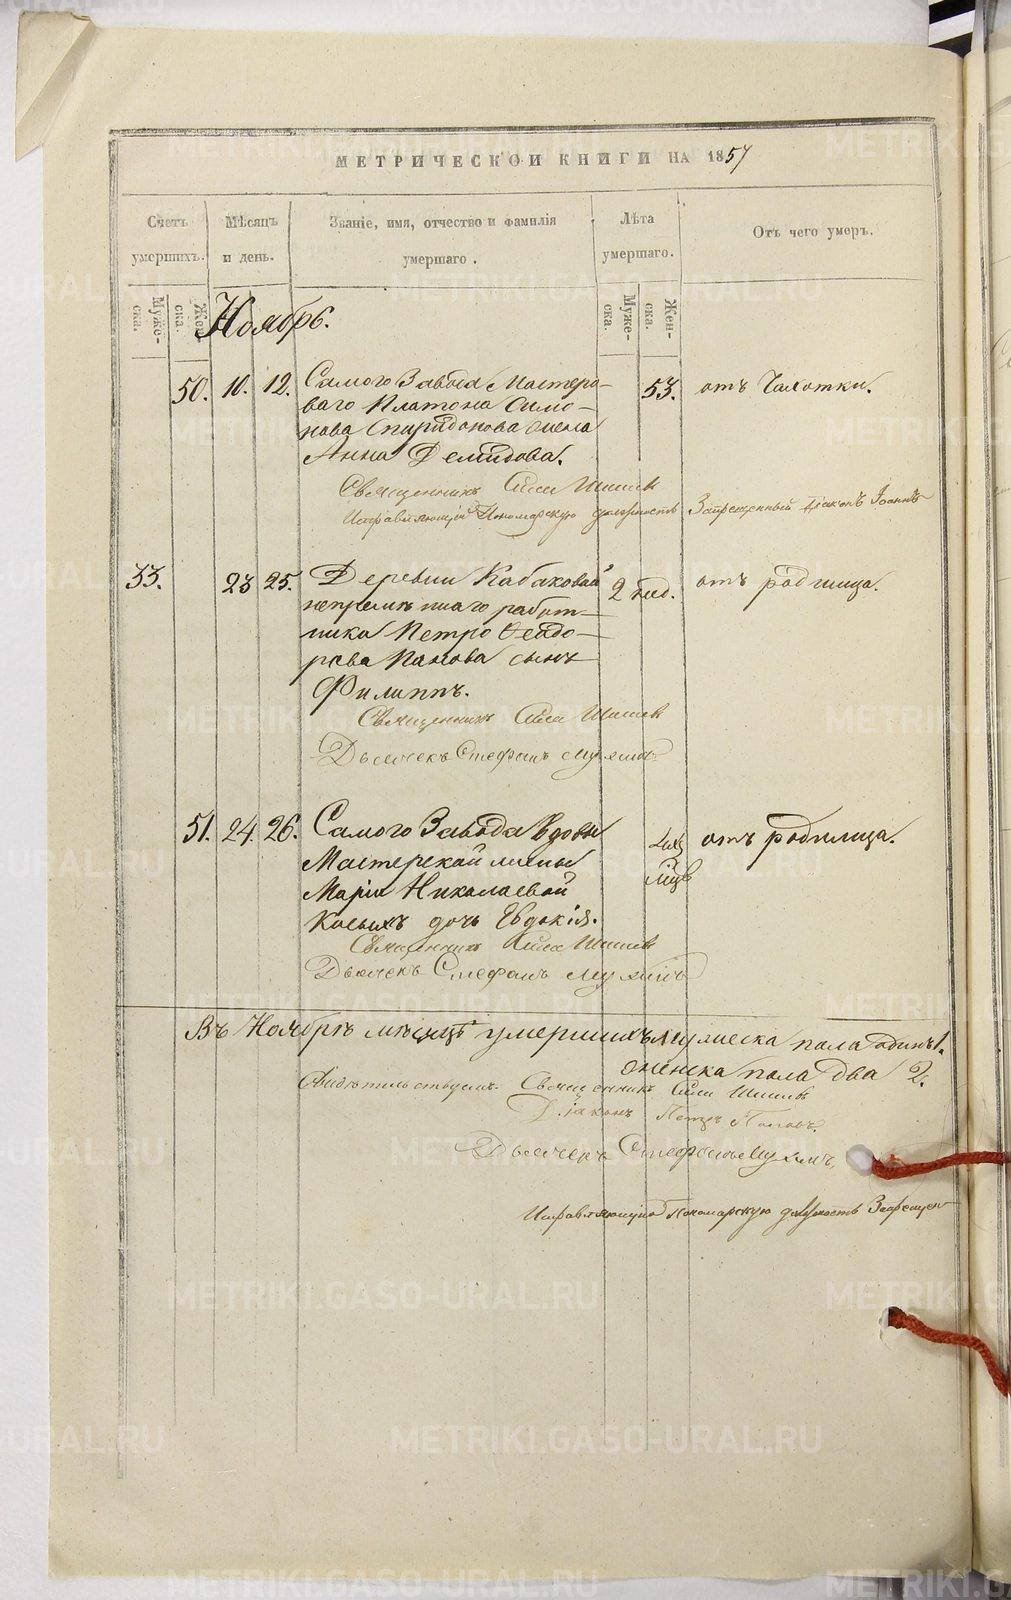 МЕТРИЧЕСКОЙ КНИГИ НА 1857
Счетъ умершихъ.
Мѣсяцъ и день.
Званіе, имя, отчество и фамилія умершаго.
Лѣта умершаго.
Отъ чего умеръ.
Муже-ска.
Жен-ска.
Муже-ска.
Жен-ска.
Ноябрь.
50. 10. 12. Самого Завода Мастеро- 53. отъ Чахотки.
ваго Платона Симо-
нова Спиридонова жена
Анна Демидова.
Священникъ Шишевъ
Исправляющій Пономарскую должность Запрещенный Діаконъ Іоаннъ
33. 23 25. Деревни Кабаковой 2 нед. отъ родимца.
непремѣннаго работ-
ника Петра Ѳедо-
рова Панова сынъ
Филиппъ.
Священникъ Шишевъ
Дьячекъ Стефанъ Мухинъ
51. 24. 26. Самого Завода вдовы отъ родимца.
Мастерской жены
Маріи Николаевой
Косыхъ дочь Евдокія.
Священникъ Шишевъ
Дьячекъ Стефанъ Мухинъ
Въ Ноябрѣ мѣсяцѣ умершихъ мужеска пола одинъ 1.
женска пола два 2.
Свидѣтельствуемъ: Священникъ Шишевъ
Діаконъ Петръ Поповъ.
Дьячекъ Стефанъ Мухинъ,
Исправляющій Пономарскую должность Запрещен
METRIKI.GASO-URAL.RU